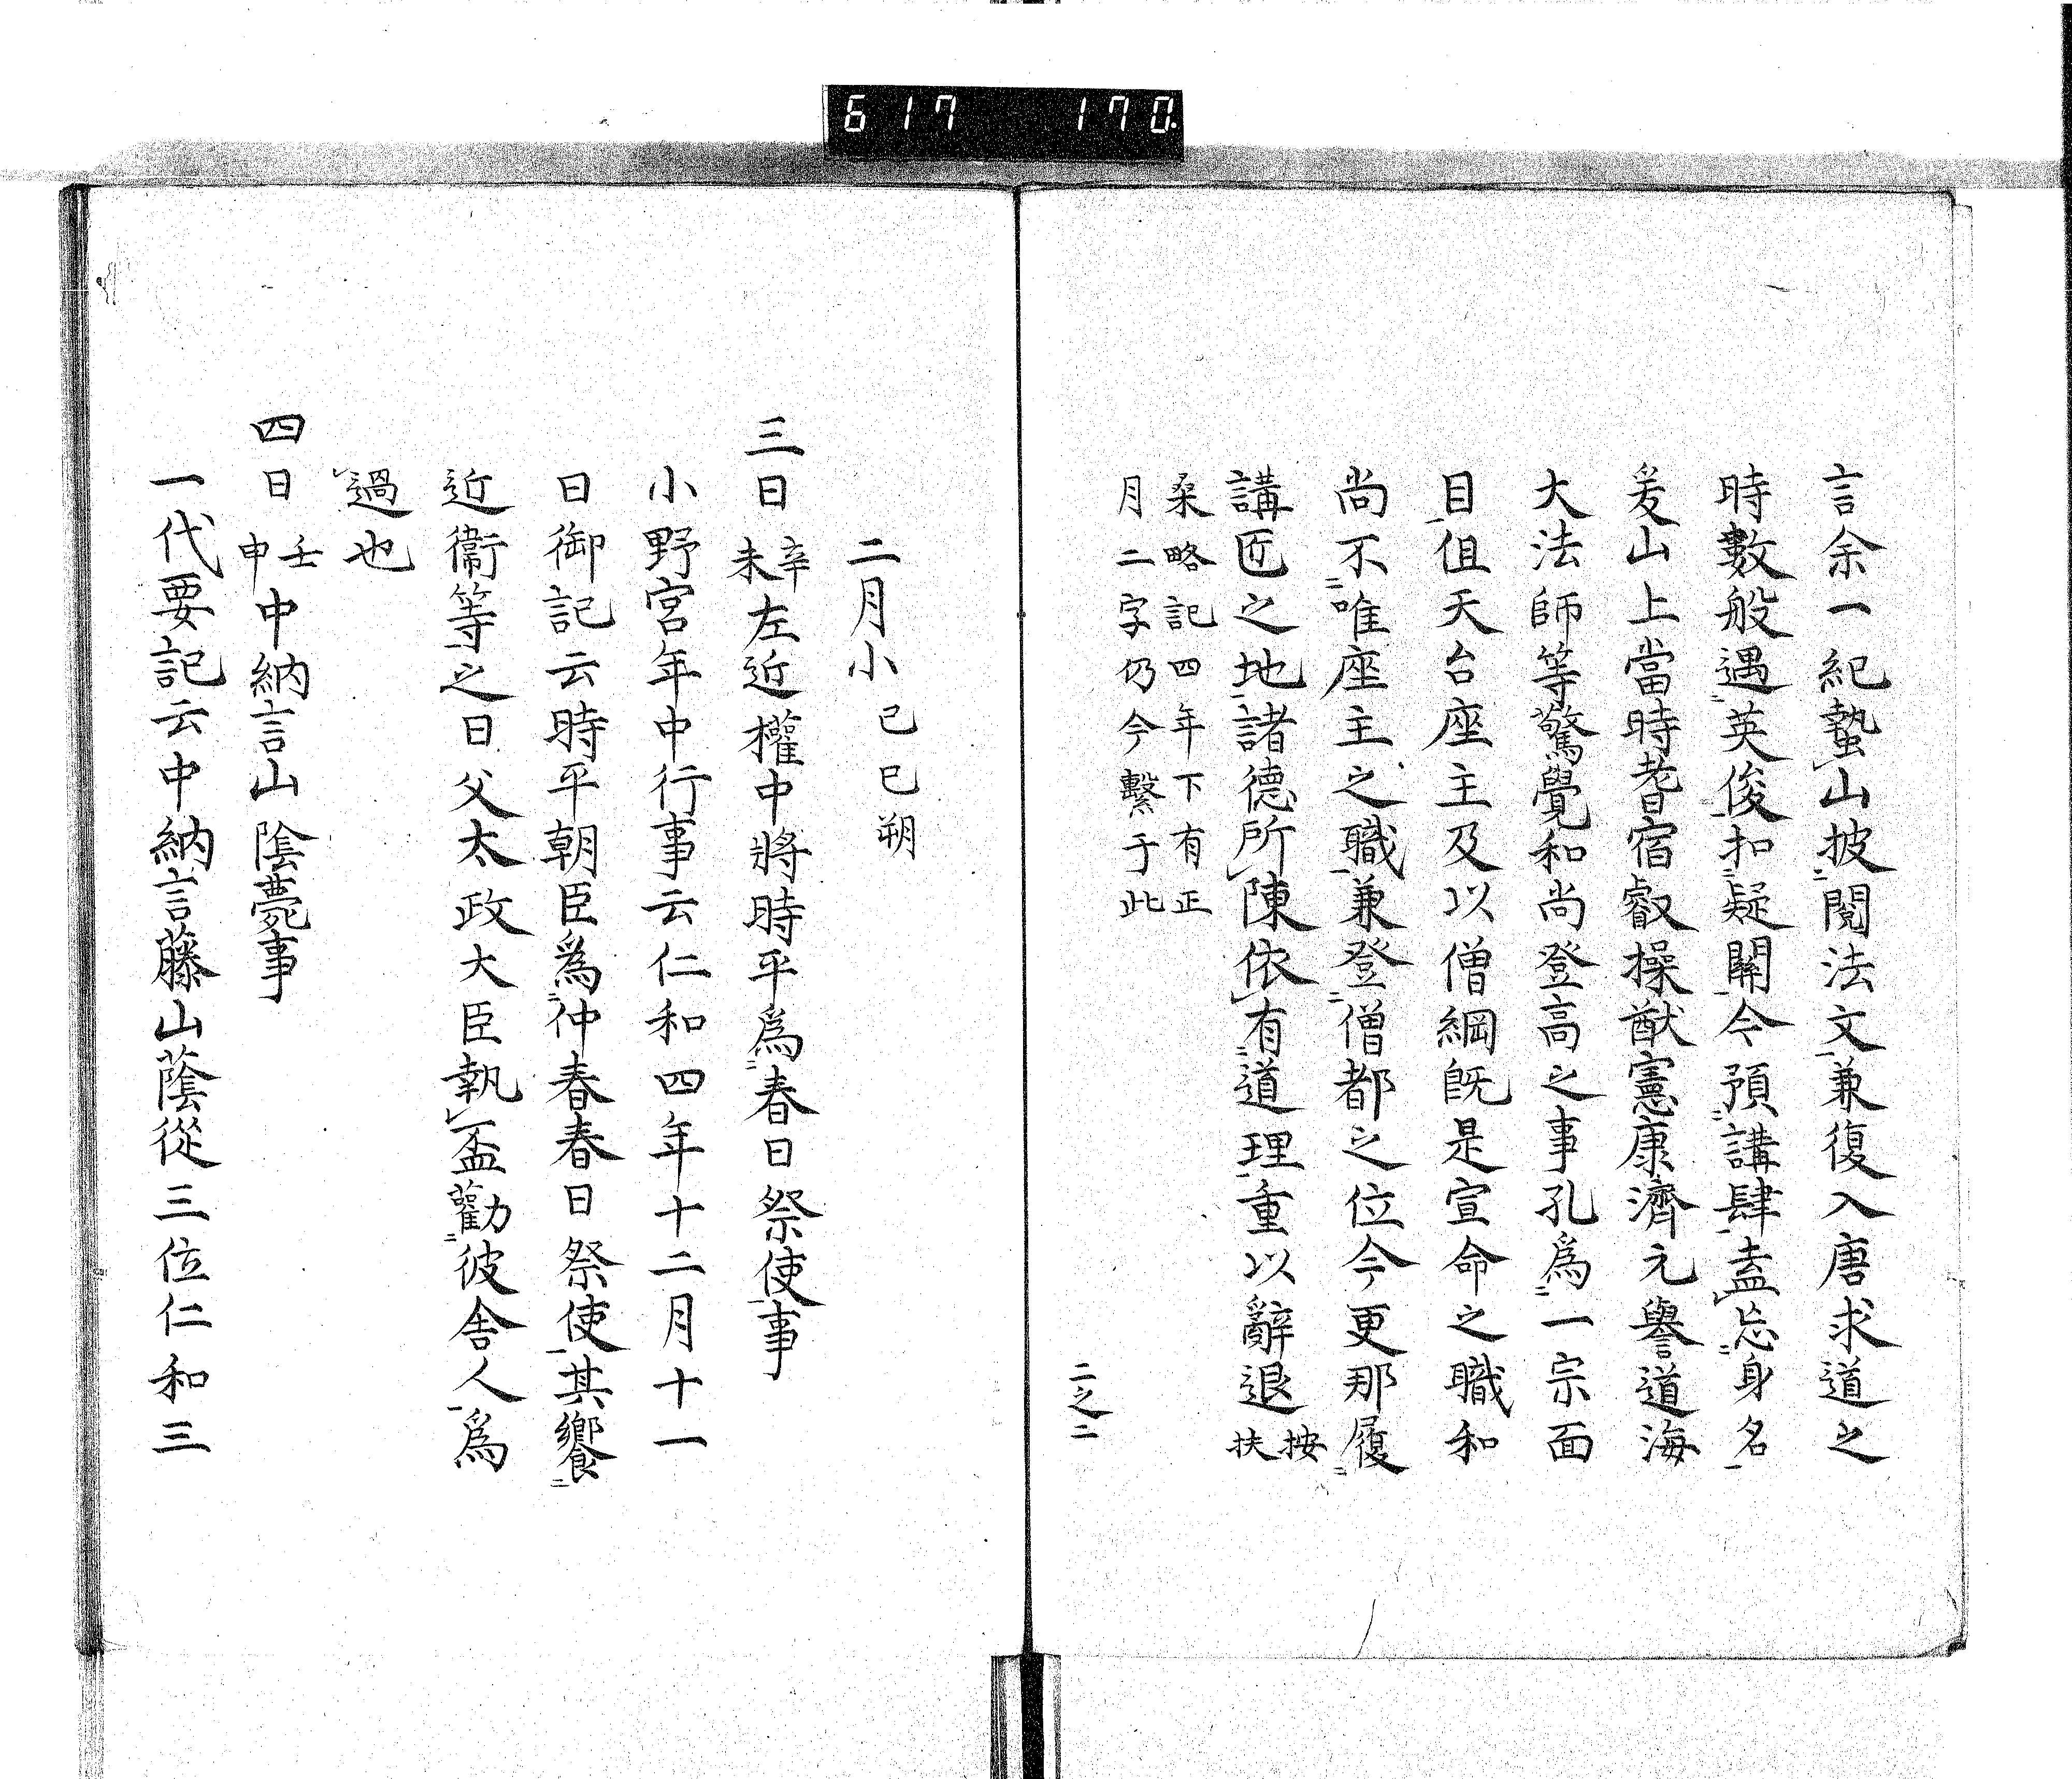 617 170
言余一紀蟄山披閱法文兼復入唐求道之
時數般遇英俊扣疑關今預講肆盍忘身名
爰山上當時耆宿叡操猷憲康濟元譽道海
大法師等驚覺和尚登高之事孔為一宗面
目但天台座主及以僧綱既是宣命之職和
尚不唯座主之職兼登僧都之位今更那履
講匠之地諸德所陳依有道理重以辭退按扶
桑略記四年下有正
月二字仍今繫于此
二之二
二月小己巳朔
三日辛未左近權中將時平為春日祭使事
小野宮年中行事云仁和四年十二月十一
日御記云時平朝臣為仲春春日祭使其饗
近衞等之日父太政大臣執盃勸彼舍人為
過也
四日壬申中納言山陰薨事
一代要記云中納言藤山蔭從三位仁和三